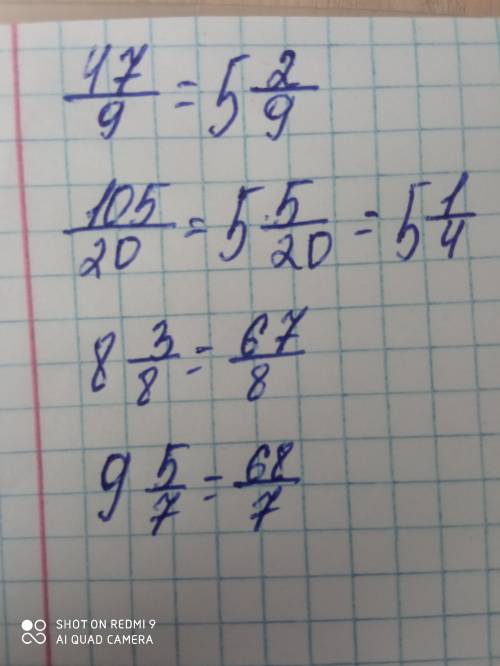 47/9 = 5 2/9
105/20 = 5 5/20 = 5 1/4
8 3/8 = 67/8
9 5/7 = 68/7
SHOT ON REDMI 9
AI QUAD CAMERA